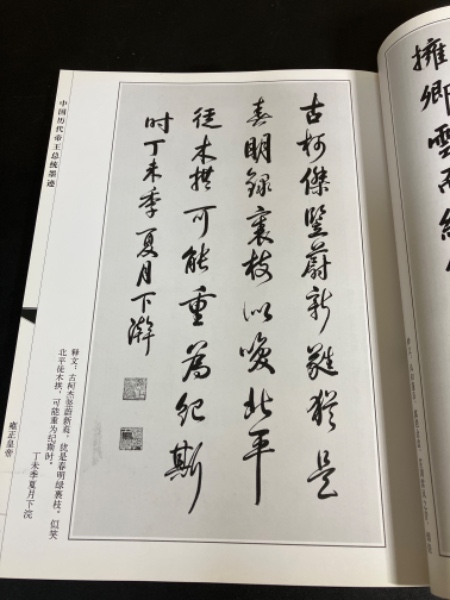 擁卿雲而
古柯傑竪蔚新蕤猶是
春明緑裹枝似笑北平
徒木拱可能重為紀斯
时丁未季夏月下澣
释文：古柯杰竖蔚新蕤，犹是春明绿裹枝。似笑
北平徒木拱，可能重为纪斯时。
丁未季夏月下浣
中国历代帝王总统墨迹
雍正皇帝